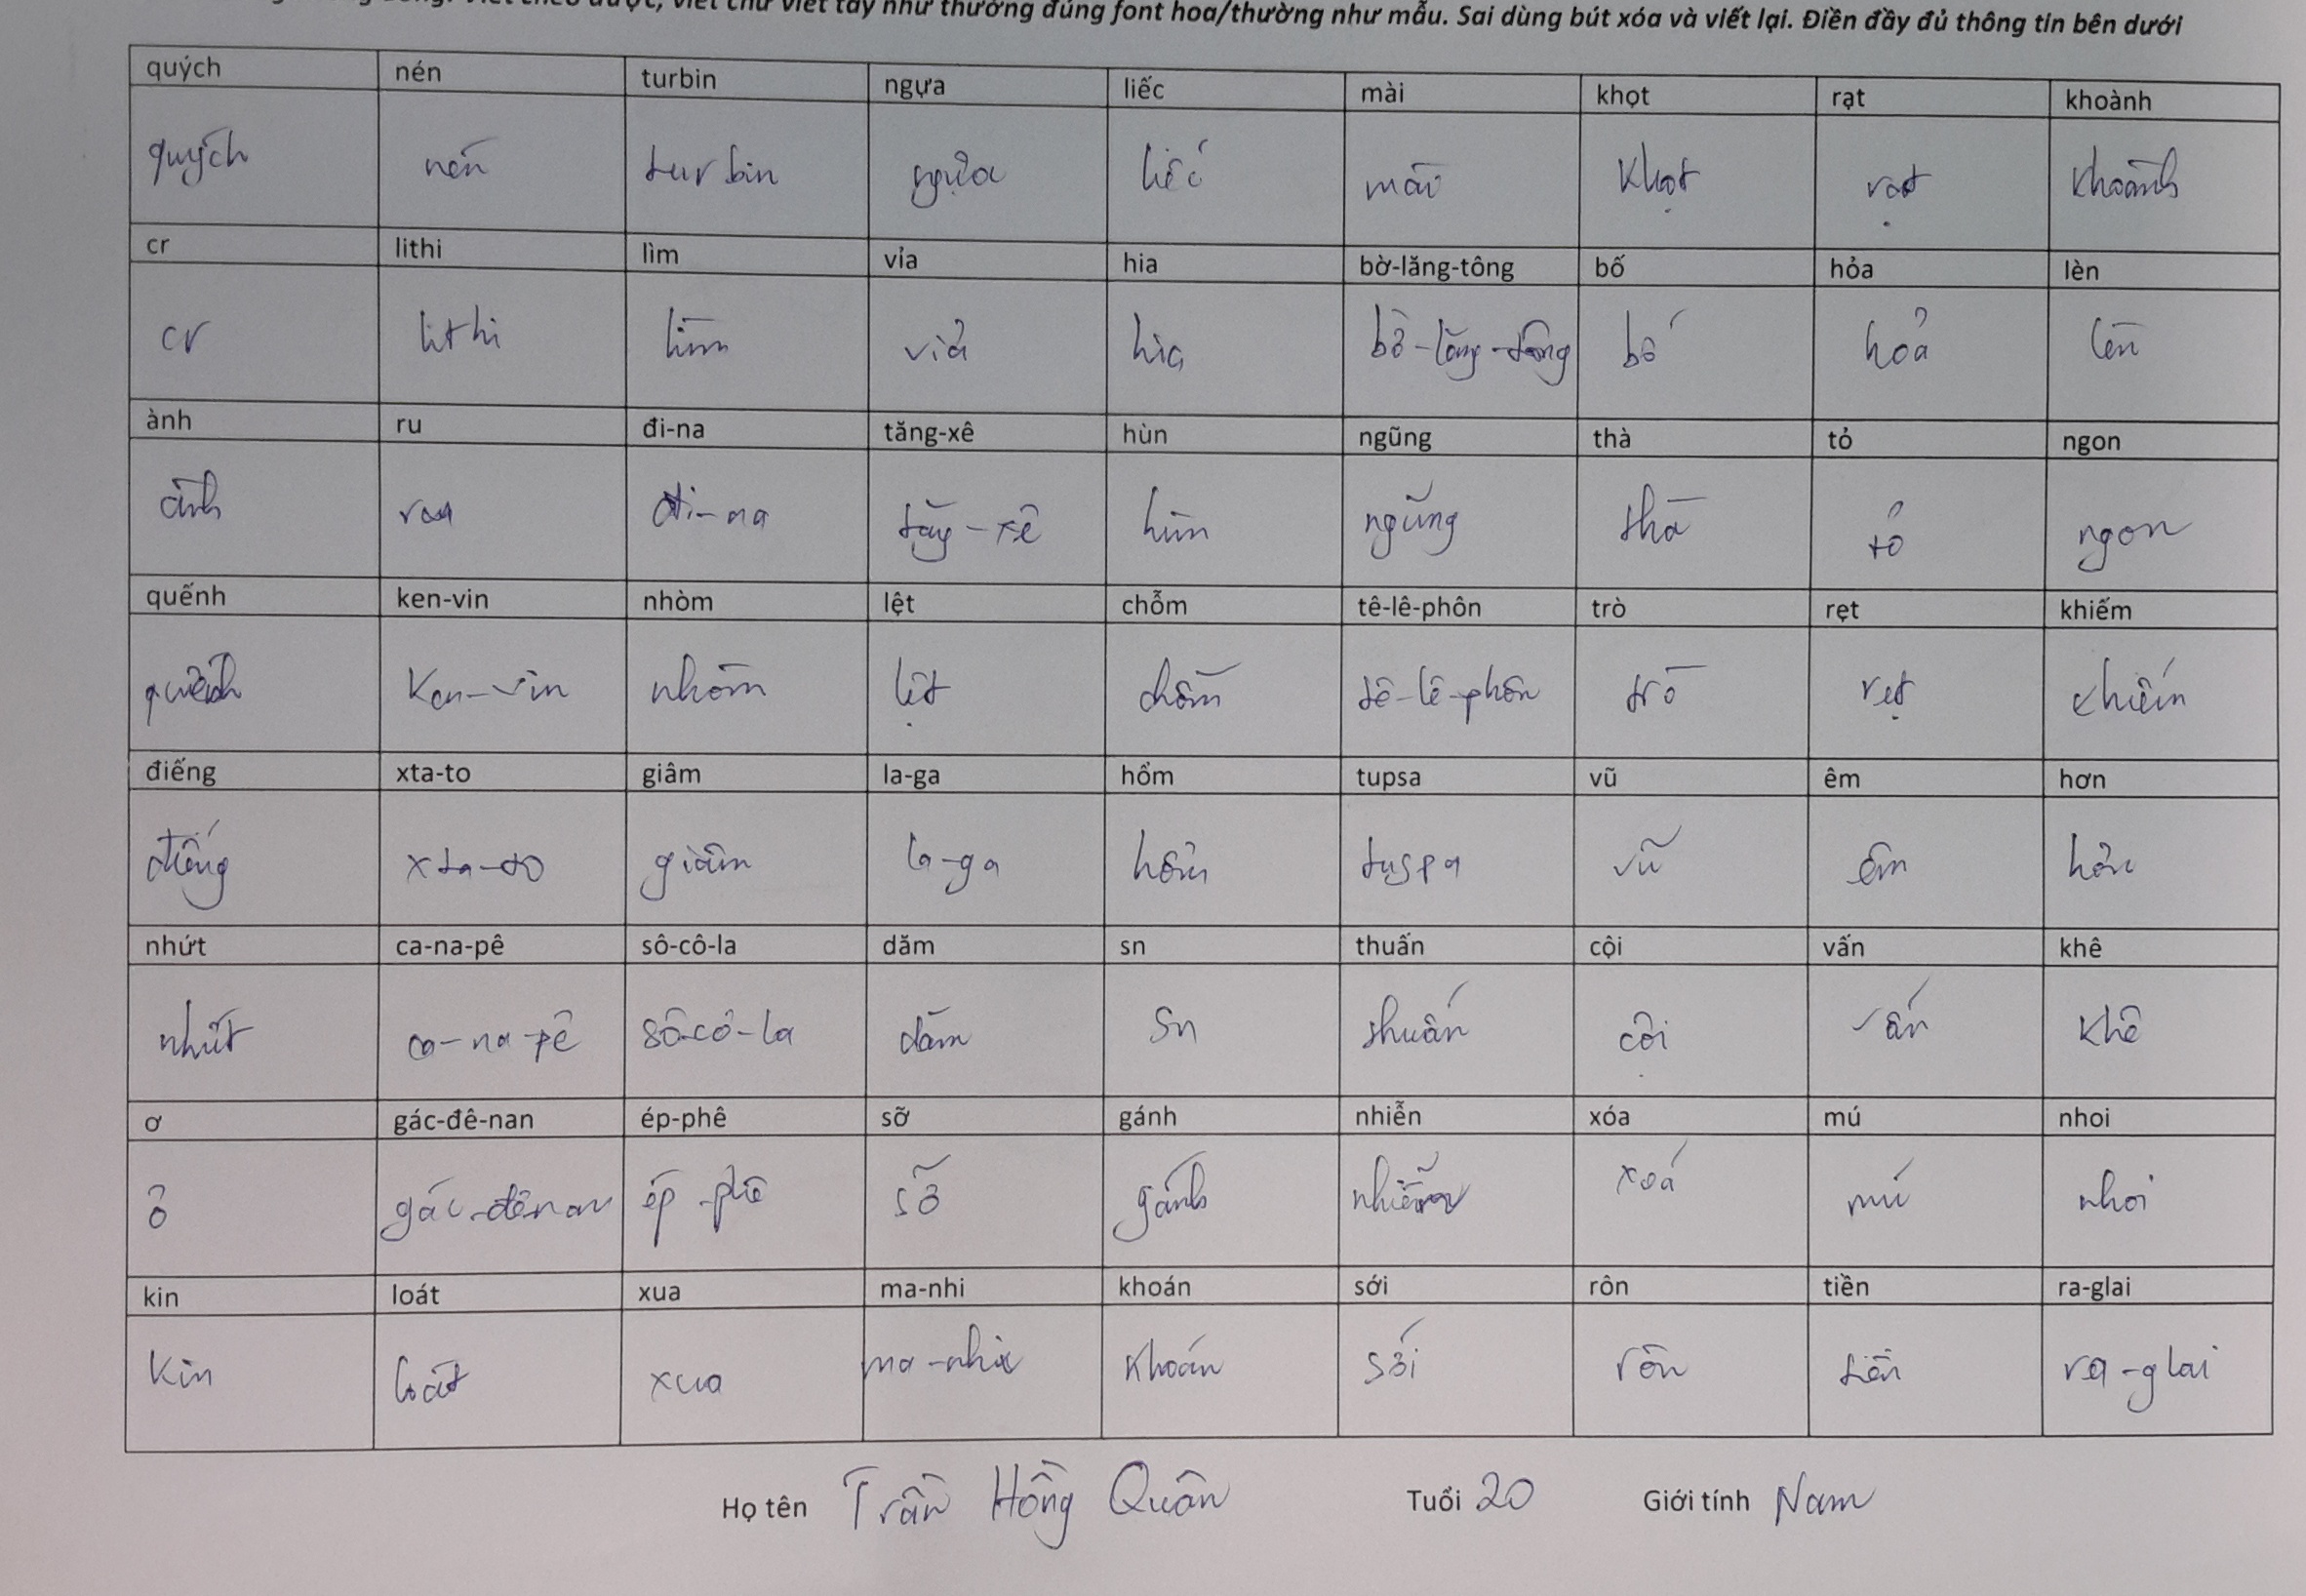 viết chữ viết tay như thường đúng font hoa/thường như mẫu. Sai dùng bút xóa và viết lại. Điền đầy đủ thông tin bên dưới
quých nén turbin ngựa liếc mài khọt rạt khoành
quých nén turbin ngựa liếc mài khọt rạt khoành
cr lithi lìm vỉa hia bờ-lăng-tông bố hỏa lèn
cr lithi lìm vỉa hia bờ-lăng-tông bố hỏa lèn
ành ru đi-na tăng-xê hùn ngũng thà tỏ ngon
ành đi-na tăng-xê hùn ngũng thà tỏ ngon
quếnh ken-vin nhòm lệt chỗm tê-lê-phôn trò rẹt khiếm
quếnh ken-vin nhòm lệt chỗm tê-lê-phôn trò rẹt khiếm
điếng xta-to giâm la-ga hổm tupsa vũ êm hơn
điếng xta-to giâm la-ga hổm vũ êm hơn
nhứt ca-na-pê sô-cô-la dăm sn thuấn cội vấn khê
nhứt ca-na-pê sô-cô-la dăm sn thuấn cội vấn khê
ơ gác-đê-nan ép-phê sỡ gánh nhiễn xóa mú nhoi
ơ gác-đê-nan ép-phê sỡ gánh nhiễn xoá mú nhoi
kin loát xua ma-nhi khoán sới rôn tiền ra-glai
kin loát xua ma-nhi khoán sới rôn tiền ra-glai
Họ tên Trần Hồng Quân Tuổi 20 Giới tính Nam